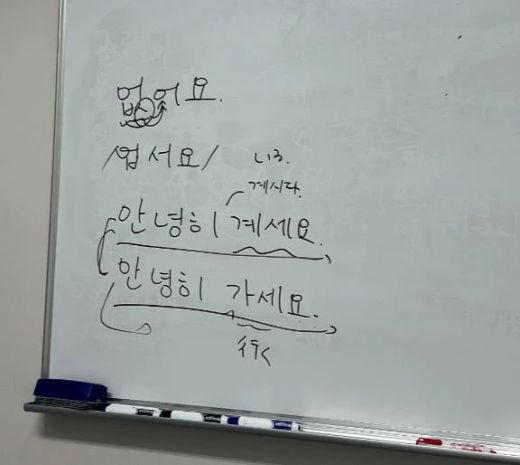 없어요.
/업서요/
いる.
계시다.
안녕히 계세요.
안녕히 가세요.
行く